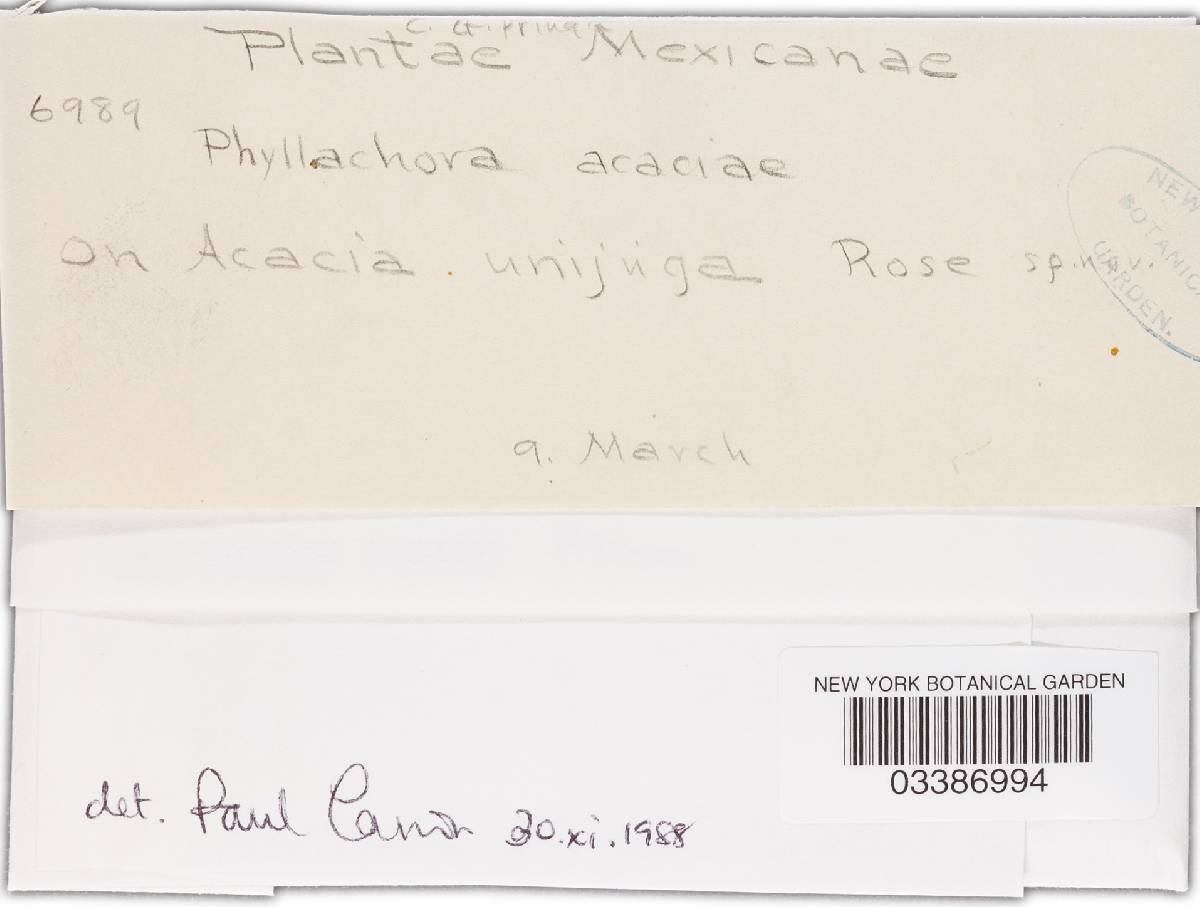 Plantae Mexicanae
6989
Phyllachora acaciae
on Acacia unijuga Rose sp.nov.
NEW
BOTANIC
GARDEN.
9. March
NEW YORK BOTANICAL GARDEN
03386994
det. Paul Cannon 30.xi.1988